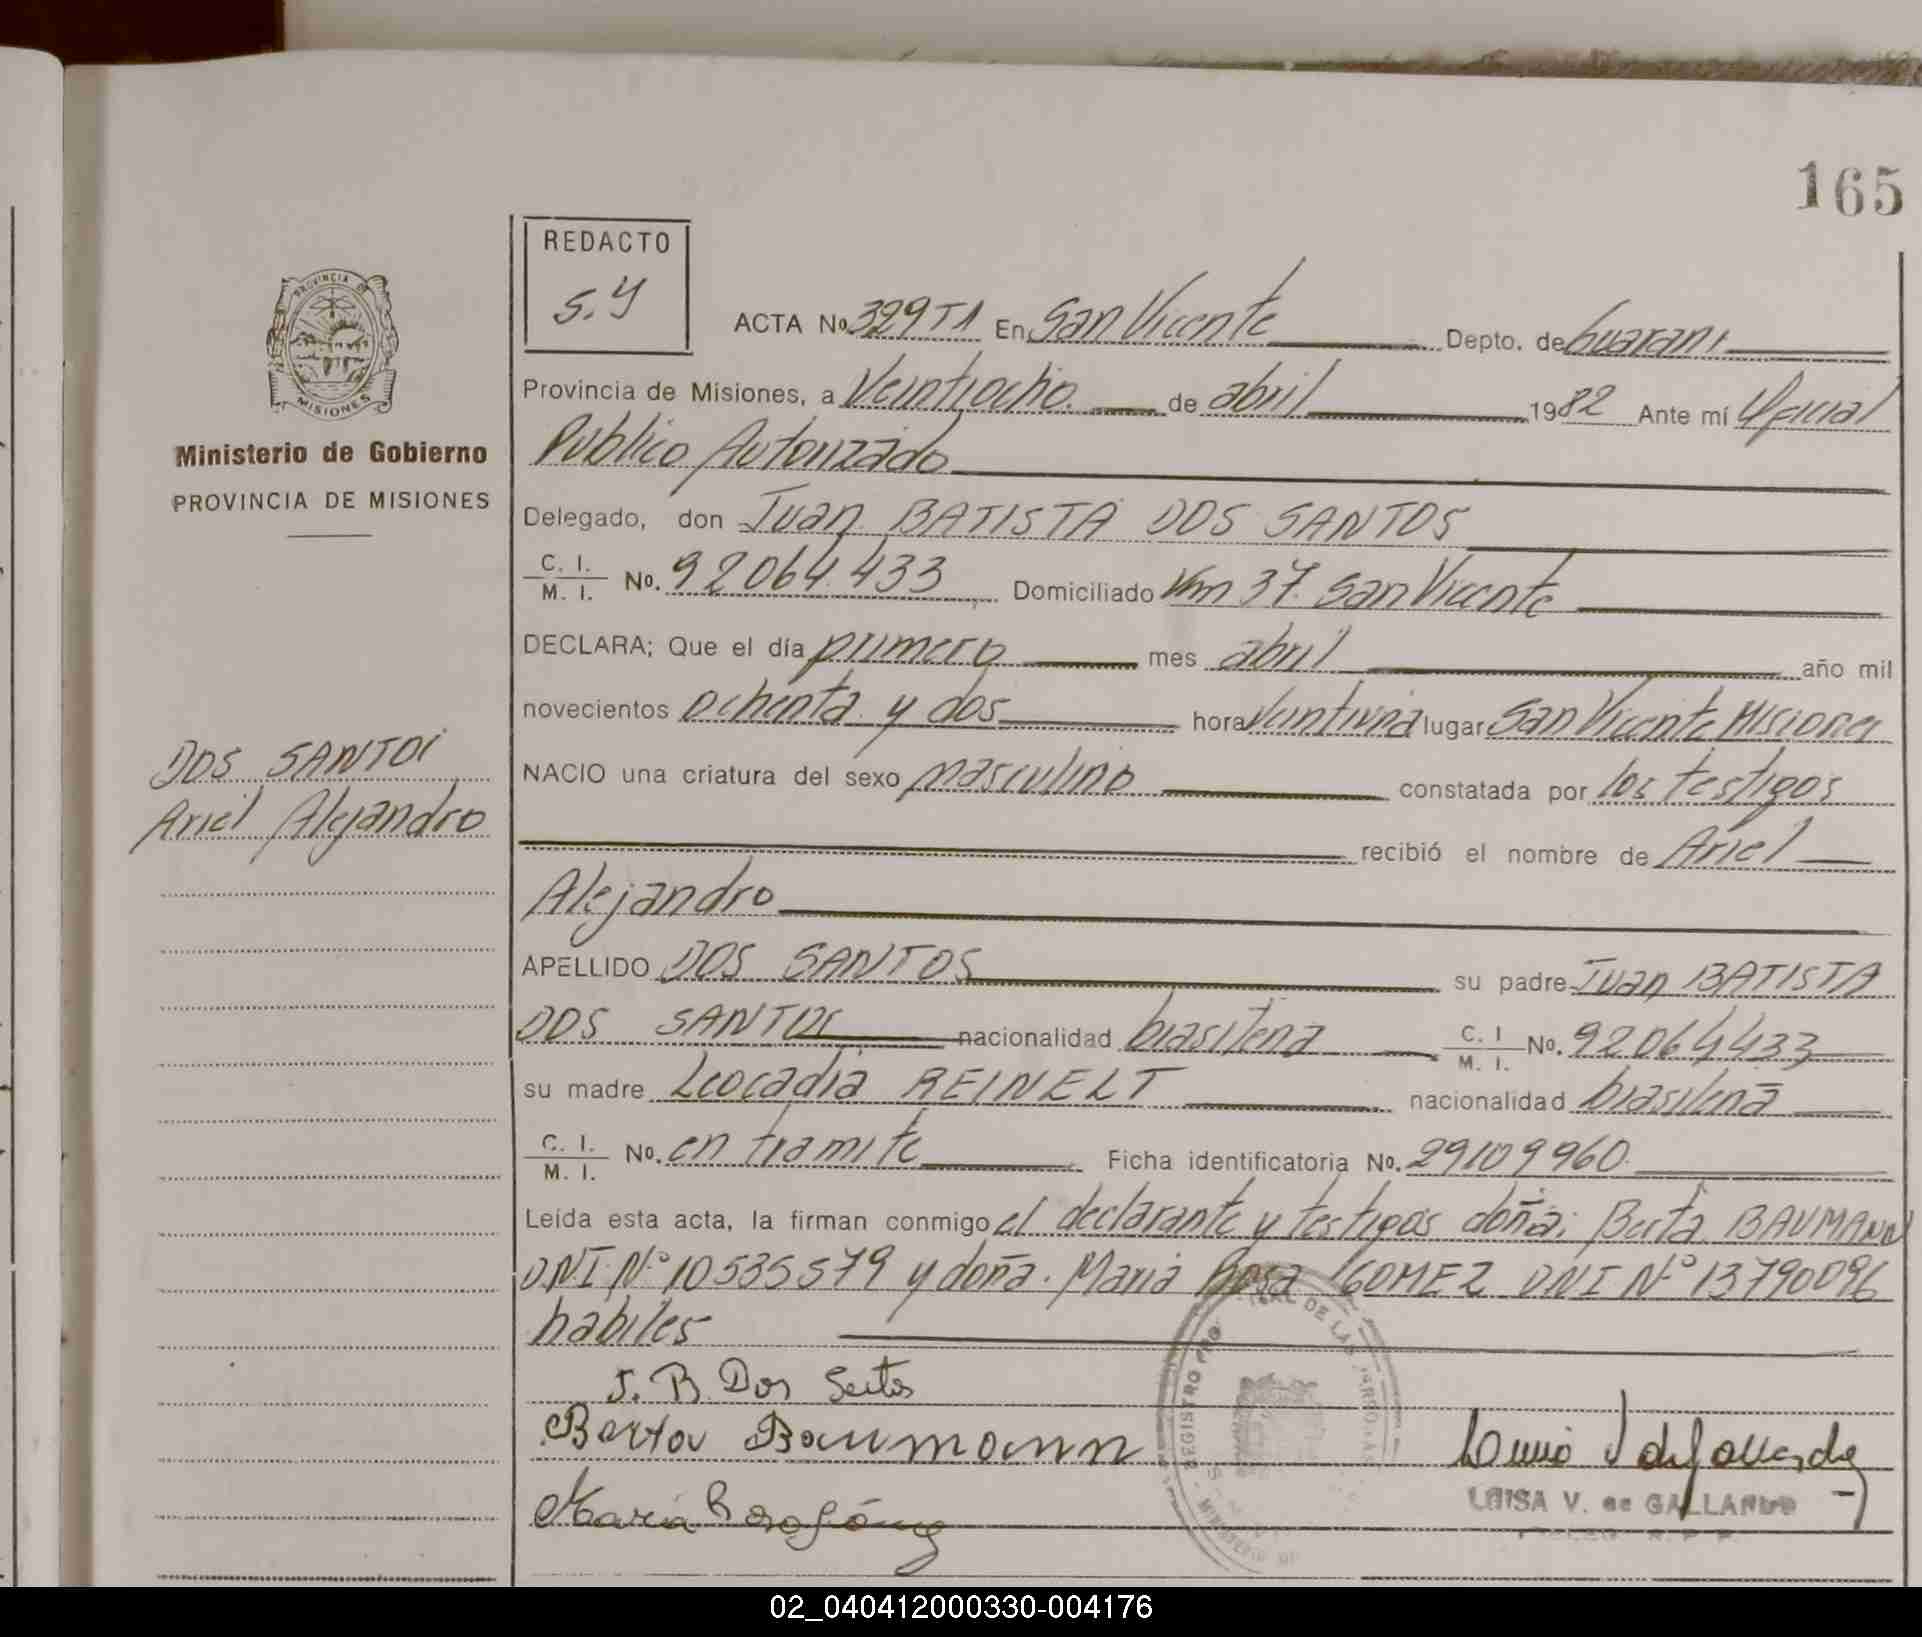 165
REDACTO
S.Y
ACTA No. 329 T1 En San Vicente Depto. de Guarani
PROVINCIA DE
MISIONES
Provincia de Misiones, a Veintiocho de abril 1982 Ante mí Oficial
Ministerio de Gobierno
Publico Autorizado
PROVINCIA DE MISIONES
Delegado, don Juan BATISTA DOS SANTOS
C. I. / M. I. No. 92064.433 Domiciliado Km 37. San Vicente
DECLARA; Que el día primero mes abril año mil
novecientos ochenta y dos hora Veintiuna lugar San Vicente Misiones
DOS SANTOS
NACIO una criatura del sexo masculino constatada por los testigos
Ariel Alejandro
recibió el nombre de Ariel
Alejandro
APELLIDO DOS SANTOS su padre Juan BATISTA
DOS SANTOS nacionalidad brasileña C. I / M. I. No. 92064433
su madre Leocadia REINELT nacionalidad brasileña
C. I. / M. I. No. en tramite Ficha identificatoria No. 29109960
Leída esta acta, la firman conmigo el declarante y testigos doña: Berta BAUMANN
DNI Nº 10535579 y doña. Maria Rosa GOMEZ DNI Nº 13790096
habiles
J. B. Dos
Berta Baumann
Maria Rosa Gómez
REGISTRO DE LAS
MINISTERIO DE
LUISA V. de GALLARDO
02_040412000330-004176